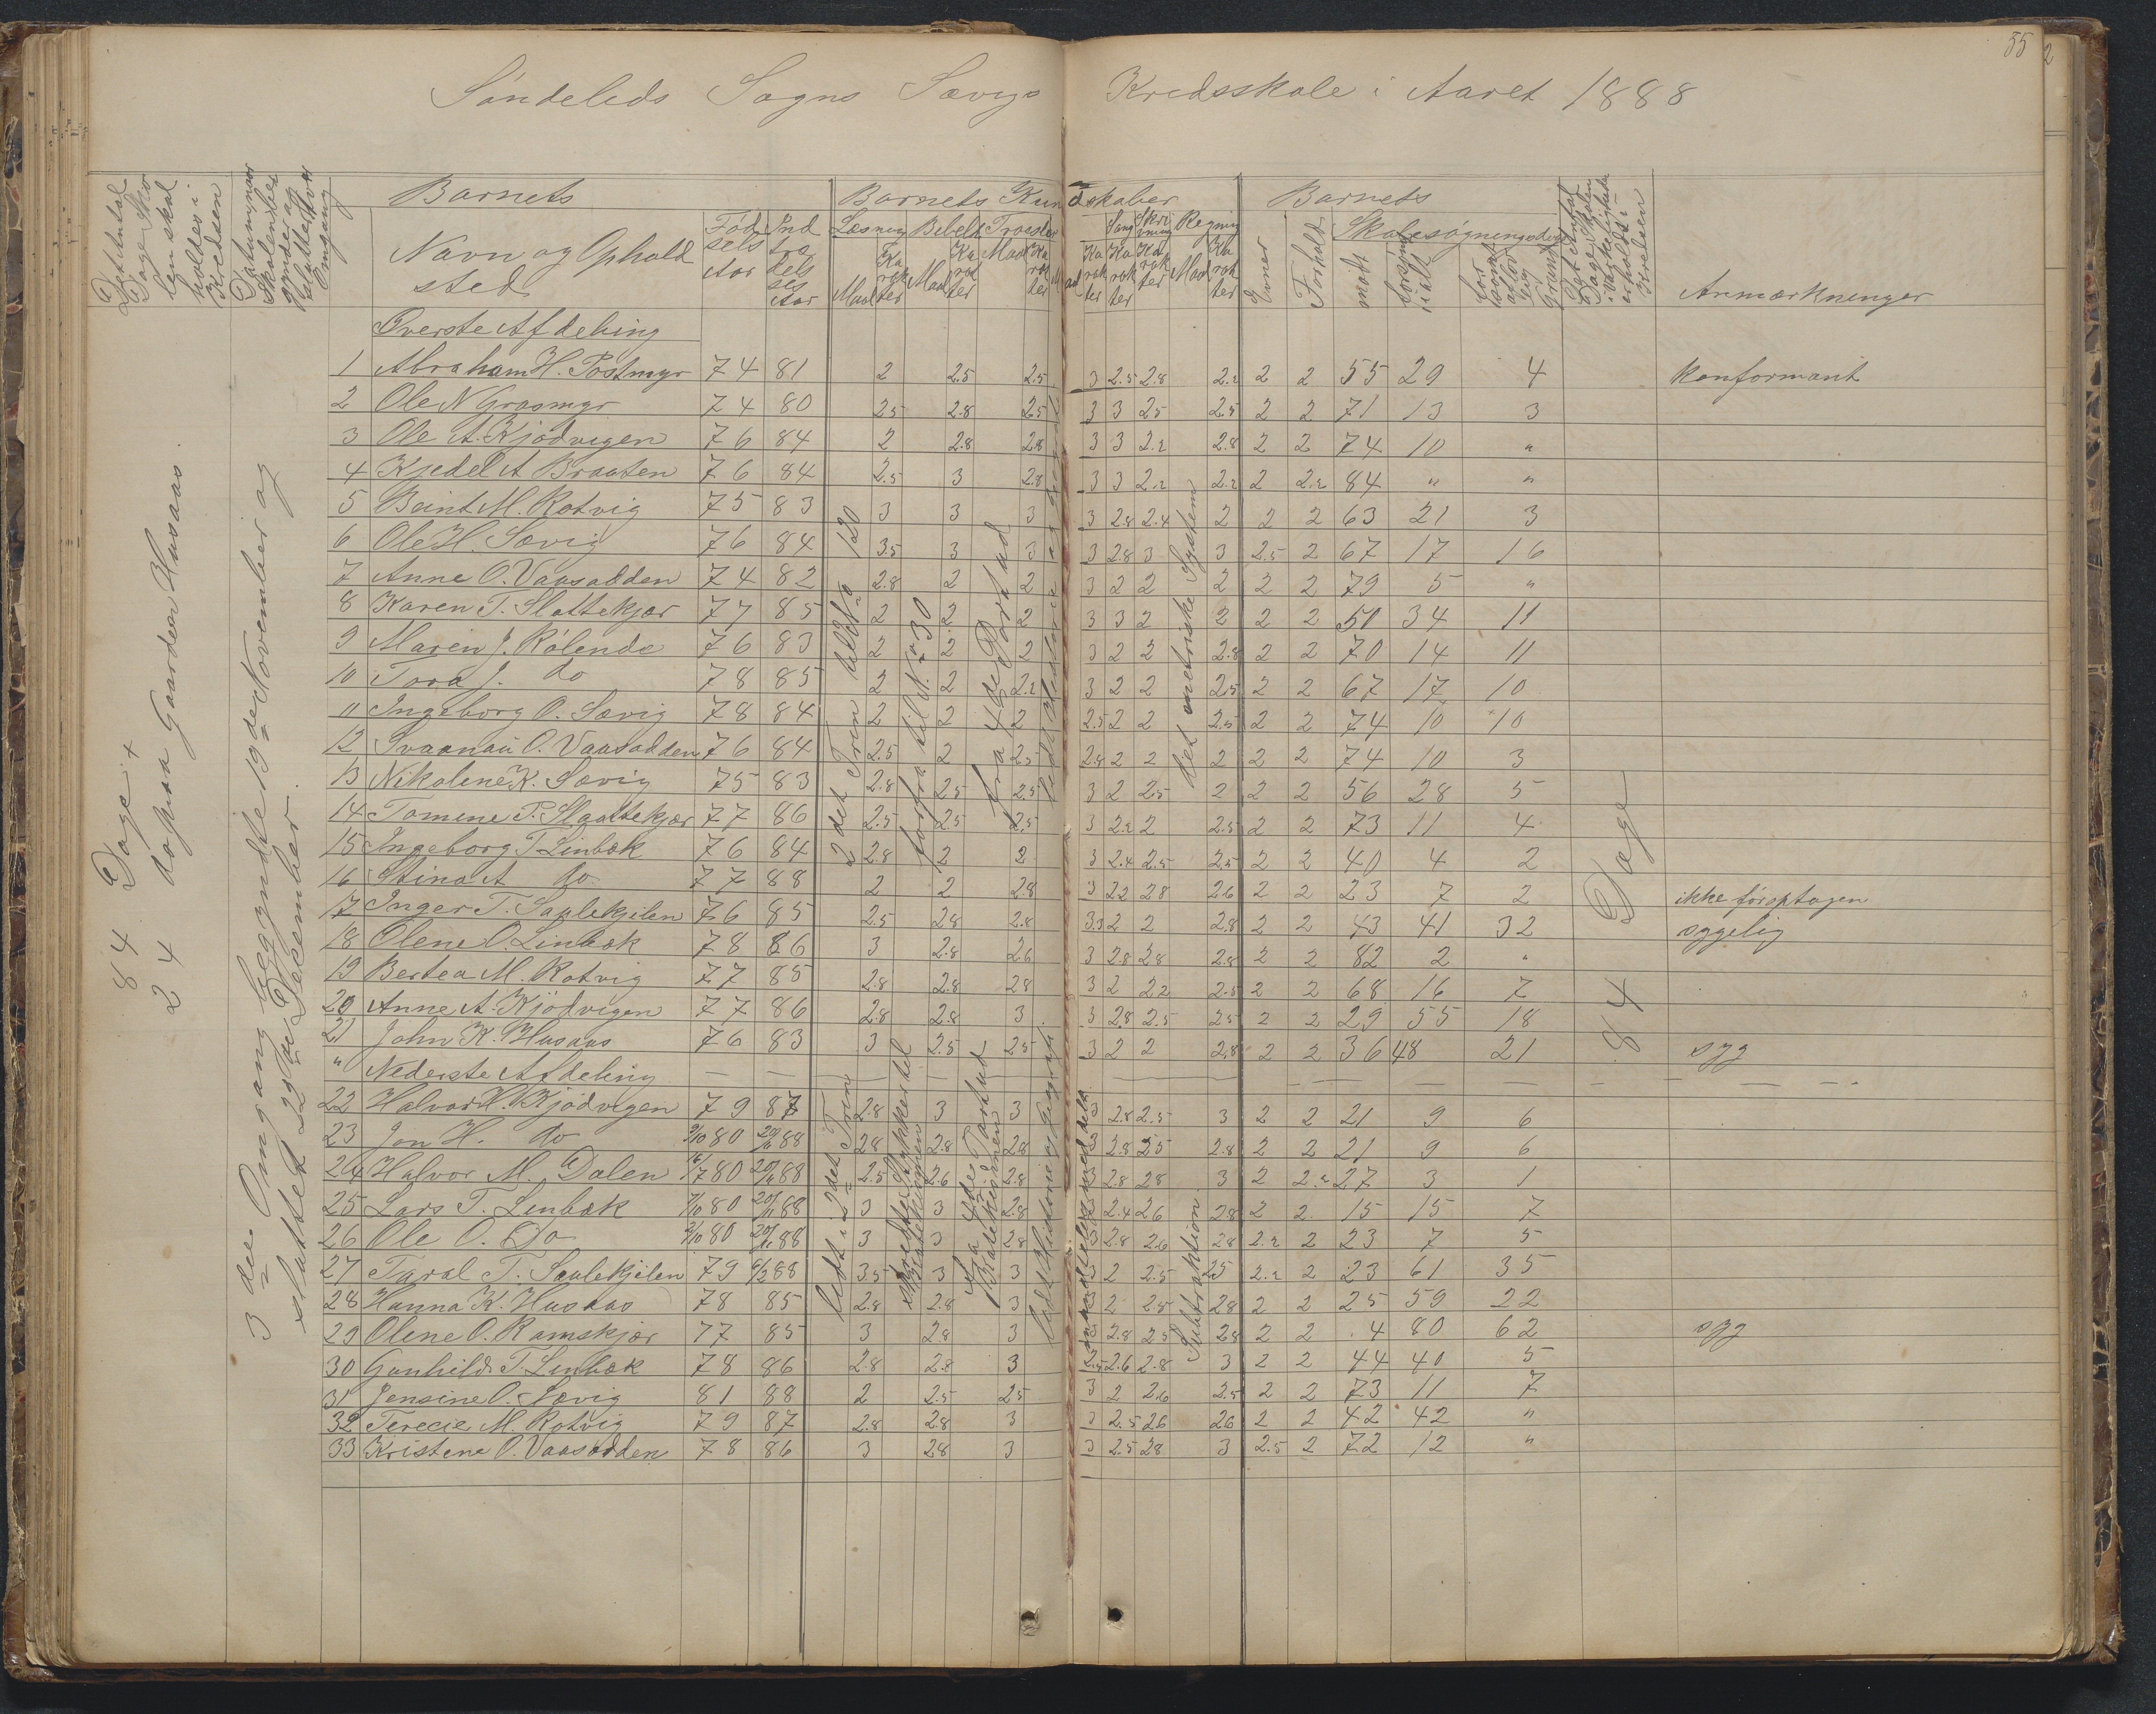 55
Søndeleds Sogns Sævigs Kredsskole i Aaret 1888
Det Antal Dage Skolen skal holdes i Kredsen
Datum, naar Skolen begynder og slutter hver Omgang
Barnets
Navn og Opholdsted
Fødselsaar
Indtrædelsesaar
Barnets Kundskaber
Læsning Maal Karakter
Bibelh Maal Karakter
Troeslær Maal Karakter
Sang Karakter
Skrivning Karakter
Regning Maal Karakter
Barnets
Evner
Forhold
Skolesøgningsdage
mødt
forsømt i alt
Anmærkninger
84 Dage +
24 do paa Gaarden Husaas.
3die Omgang begyndte 19de November og
sluttet 22de December.
Øverste Afdeling
1 Abraham H. Postmyr 74 81 2 2.5 2.5 3 2.5 2.8 2.2 2 2 55 29 4 konformant
2 Ole N Græsmyr 74 80 2.5 2.8 2.5 3 3 2.5 2.5 2 2 71 13 3
3 Ole A. Kjødvigen 76 84 2 2.8 2.8 3 3 2.2 2.8 2 2 74 10 "
4 Kjedel A Braaten 76 84 2.5 3 2.8 3 3 2.2 2.2 2 2.2 84 " "
5 Beint M. Rotvig 75 83 3 3 3 3 2.8 2.4 2 2 2 63 21 3
6 Ole H. Sævig 76 84 3.5 3 3 3 2.8 3 3 2.5 2 67 17 16
7 Anne O. Vaasadden 74 82 2.8 2 2 3 2 2 2 2 2 79 5 "
8 Karen T. Slottekjær 77 85 2 2 2 3 3 2 2 2 2 50 34 11
9 Maren J. Rølende 76 83 2 2 2 3 2 2 2.8 2 2 70 14 11
10 Tora J. do 78 85 2 2 2.2 3 2 2 2.5 2 2 67 17 10
11 Ingeborg O. Sævig 78 84 2 2 2 2.5 2 2 2.5 2 2 74 10 10
12 Svaanau O. Vaasadden 76 84 2.5 2 2.5 2.8 2 2 2 2 2 74 10 3
13 Nikoline K. Sævig 75 83 2.8 2.5 2.5 3 2 2.5 2 2 2 56 28 5
14 Tomine P. Slaattekjær 77 86 2.5 2.5 2.5 3 2.2 2 2.5 2 2 73 11 4
15 Ingeborg T Linbæk 76 84 2.8 2 2 3 2.4 2.5 2.5 2 2 40 4 2
16 Stina A do. 77 88 2 2 2.8 3 2.2 2.8 2.6 2 2 23 7 2 ikke før optagen
17 Inger T. Saulekjilen 76 85 2.5 2.8 2.8 3.3 2 2 2.8 2 2 43 41 32 sygelig
18 Olene O. Linbæk 78 86 3 2.8 2.6 3 2.8 2.8 2.8 2 2 82 2 "
19 Bertea M. Rotvig 77 85 2.8 2.8 2.8 3 2 2.2 2.5 2 2 68 16 7
20 Anne A. Kjødvigen 77 86 2.8 2.8 3 3 2.8 2.5 2.5 2 2 29 55 18
21 John K. Husaas 76 83 3 2.5 2.5 3 2 2 2.8 2 2 36 48 21 syg
" Nederste Afdeling
22 Halvor H. Kjødvigen 79 87 2.8 3 3 3 2.8 2.5 3 2 2 21 9 6
23 Jon H. do 9/10 80 20/11 88 2.8 2.8 2.8 3 2.8 2.5 2.8 2 2 21 9 6
24 Halvor M. Dalen 16/7 80 20/11 88 2.5 2.6 2.8 3 2.8 2.8 3 2 2.2 27 3 1
25 Lars T. Linbæk 7/10 80 20/11 88 3 3 2.8 3 2.4 2.6 2.8 2 2 15 15 7
26 Ole O. Do 2/10 80 20/11 88 3 3 2.8 3 2.8 2.6 2.8 2.2 2 23 7 5
27 Taral T. Saulekjilen 79 6/2 88 3.5 3 3 3 2 2.5 2.5 2.2 2 23 61 35
28 Hanna K. Husaas 78 85 2.8 2.8 3 3 2 2.5 2.8 2 2 25 59 22
29 Olene O. Ramskjær 77 85 3 2.8 3 3 2.8 2.5 2.8 2 2 4 80 62 syg
30 Gunhild T. Linbæk 78 86 2.8 2.8 3 2.5 2.6 2.8 3 2 2 44 40 5
31 Jensine O. Sævig 81 88 2 2.5 2.5 3 2 2.6 2.5 2 2 73 11 7
32 Terecie M. Rotvig 79 87 2.8 2.8 3 3 2.5 2.6 2.6 2 2 42 42 "
33 Kristene O. Vaasadden 78 86 3 2.8 3 3 2.5 2.8 3 2.5 2 72 12 "
2det Trin til No 120
forfra til N. 30
fra 4de Part ud
det metriske System
84 Dage
ledt i 2det Trin
fra 4de Part ud
Subtraktion